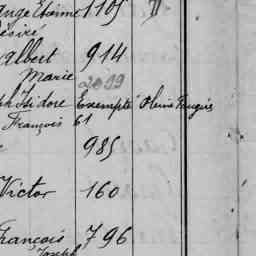 ange Etienne 1105 "
Désiré
albert 914
Marie 2099
ph Isidore Exempté
François 61
985
Victor 160
François 796
Joseph